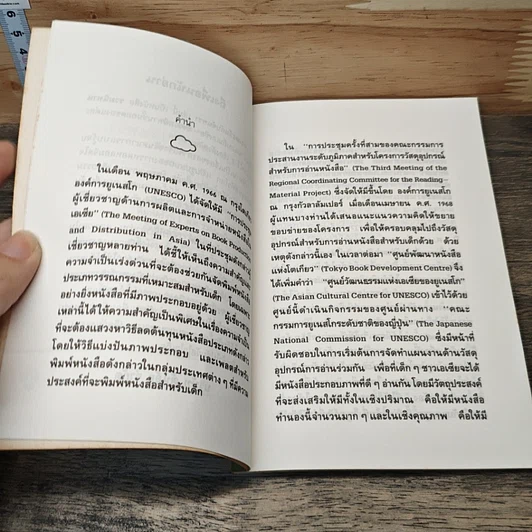 คำนำ
ในเดือน พฤษภาคม ค.ศ. 1966 ณ กรุงโตเกียว
องค์การยูเนสโก (UNESCO) ได้จัดให้มี
ผู้เชี่ยวชาญด้านการผลิตและการจำหน่ายหนังสือ
เอเซีย" (The Meeting of Experts on Book Production
and Distribution in Asia) ในที่ประชุมดังกล่าว
เชี่ยวชาญหลายท่าน ได้ชี้ให้เห็นถึงความสำคัญ
ความจำเป็นเร่งด่วนที่จะต้องช่วยกันจัดพิมพ์หนังสือ
ประเภทวรรณกรรมที่เหมาะสมสำหรับเด็ก โดยเฉพาะ
อย่างยิ่งหนังสือที่มีภาพประกอบอยู่ด้วย ผู้เชี่ยวชาญ
เหล่านี้ได้ให้ความสำคัญเป็นพิเศษในเรื่องความจำเป็น
ที่จะต้องแสวงหาวิธีลดต้นทุนหนังสือประเภทดังกล่าว
โดยให้วิธีแบ่งปันภาพประกอบ และเพลตสำหรับ
พิมพ์หนังสือดังกล่าวในกลุ่มประเทศต่าง ๆ ที่มีความ
ประสงค์ที่จะพิมพ์หนังสือสำหรับเด็ก
ใน "การประชุมครั้งที่สามของคณะกรรมการ
ประสานงานระดับภูมิภาคสำหรับโครงการวัสดุอุปกรณ์
สำหรับการอ่านหนังสือ" (The Third Meeting of the
Regional Coordinating Committee for the Reading
Material Project) ซึ่งจัดให้มีขึ้นโดย องค์การยูเนสโก
ณ กรุงกัวลาลัมเปอร์ เมื่อเดือนเมษายน ค.ศ. 1968
ผู้แทนบางท่านได้เสนอแนะแนวความคิดให้ขยาย
ขอบข่ายของโครงการ เพื่อให้ครอบคลุมไปถึงวัสดุ
อุปกรณ์สำหรับการอ่านหนังสือสำหรับเด็กด้วย ด้วย
เหตุดังกล่าวนี้เอง ในเวลาต่อมา "ศูนย์พัฒนาหนังสือ
แห่งโตเกียว" (Tokyo Book Development Centre) จึง
ได้เพิ่มคำว่า "ศูนย์วัฒนธรรมแห่งเอเซียของยูเนสโก"
(The Asian Cultural Centre for UNESCO) เข้าไว้ด้วย
ศูนย์นี้ดำเนินกิจกรรมของศูนย์ผ่านทาง "คณะ
กรรมการยูเนสโกระดับชาติของญี่ปุ่น" (The Japanese
National Commission for UNESCO) ซึ่งมีหน้าที่
รับผิดชอบในการเริ่มต้นการจัดทำแผนงานด้านวัสดุ
อุปกรณ์การอ่านร่วมกัน เพื่อที่เด็ก ๆ ชาวเอเซียจะได้
มีหนังสือประกอบภาพที่ดี ๆ อ่านกัน โดยมีวัตถุประสงค์
ที่จะส่งเสริมให้มีทั้งในเชิงปริมาณ คือให้มีหนังสือ
ทำนองนี้จำนวนมาก ๆ และในเชิงคุณภาพ คือให้มี
6
5